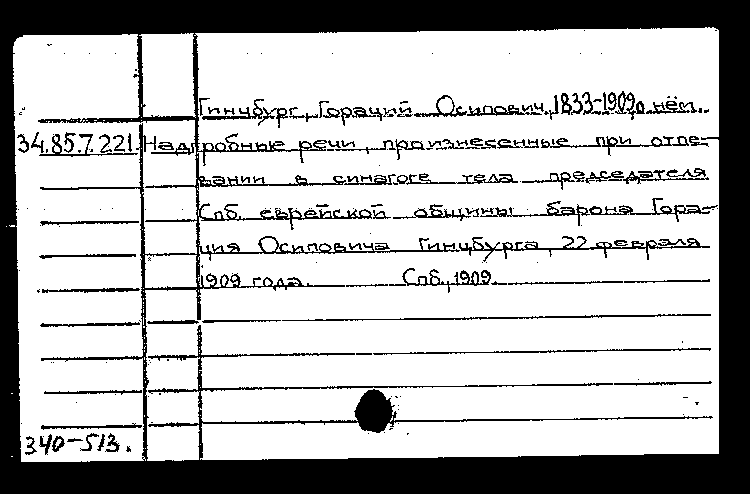 Гинцбург, Гораций Осипович, 1833-1909, о нём.
34.85.7.221. Надгробные речи, произнесенные при отпе-
вании в синагоге тела председателя
Спб. еврейской общины барона Гора-
ция Осиповича Гинцбурга, 22 февраля
1909 года. Спб., 1909.
340-513.